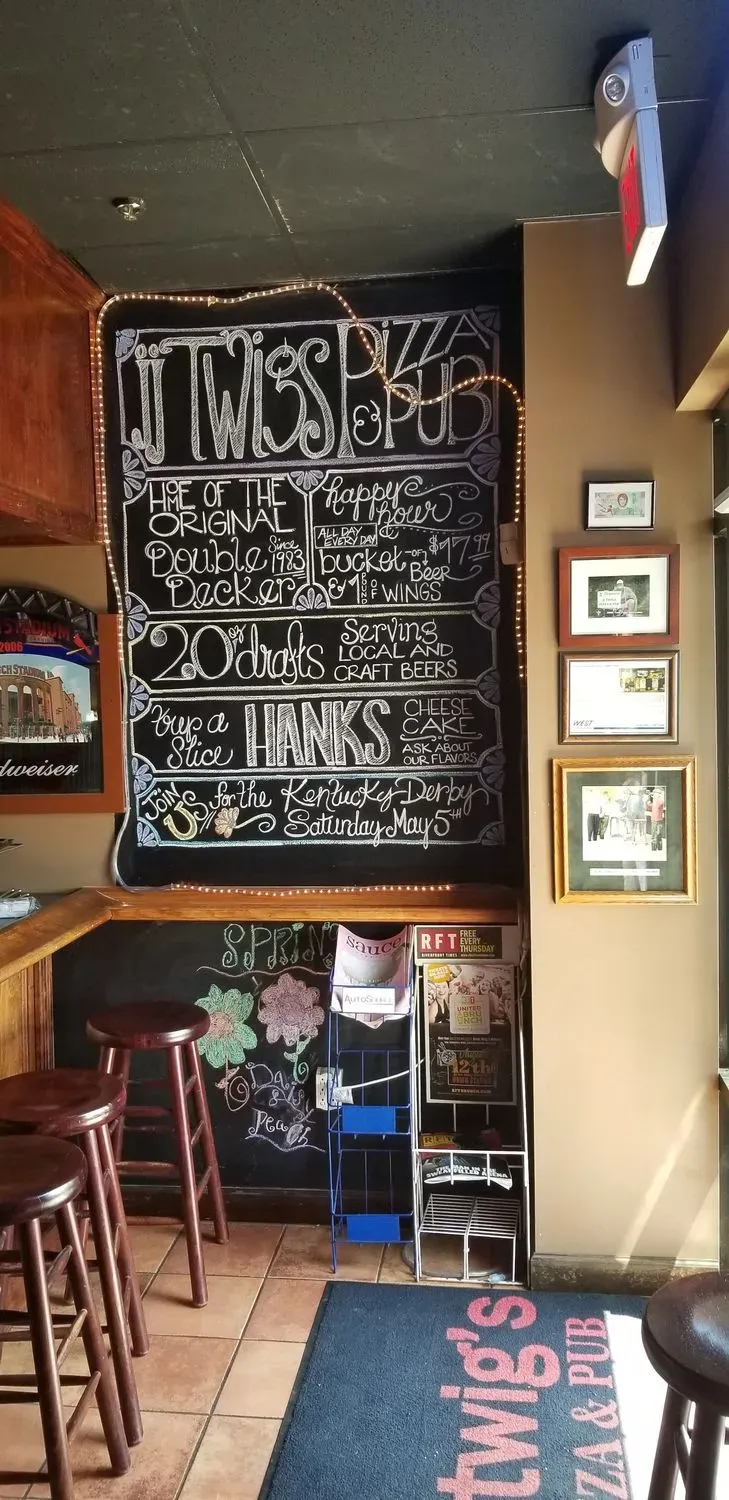 jj Twigs Pizza
& Pub
HOME OF THE
ORIGINAL
Double Since 1983
Decker
happy
hour
ALL DAY
EVERY DAY
$17.99
bucket of Beer
& 1 POUND OF WINGS
20 oz drafts
Serving
LOCAL AND
CRAFT BEERS
Slice
HANKS
CHEESE
CAKE
ASK ABOUT
OUR FLAVORS
Join
us for the Kentucky Derby
Saturday May 5TH
STADIUM
2006
BUSCH STADIUM
dweiser
WEST
SPRIN
sauce
AUTO
RFT
FREE
EVERY
THURSDAY
RIVERFRONT TIMES
UNITED
12th
UNION STATION
THE MAN IN THE
SWEAT-FILLED ARENA
twig's
ZZA & PUB